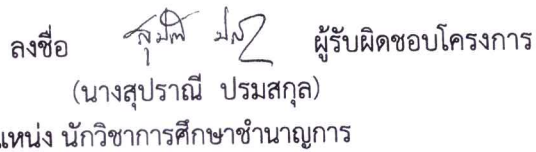 ลงชื่อ ผู้รับผิดชอบโครงการ
(นางสุปราณี ปรมสกุล)
แหน่ง นักวิชาการศึกษาชำนาญการ